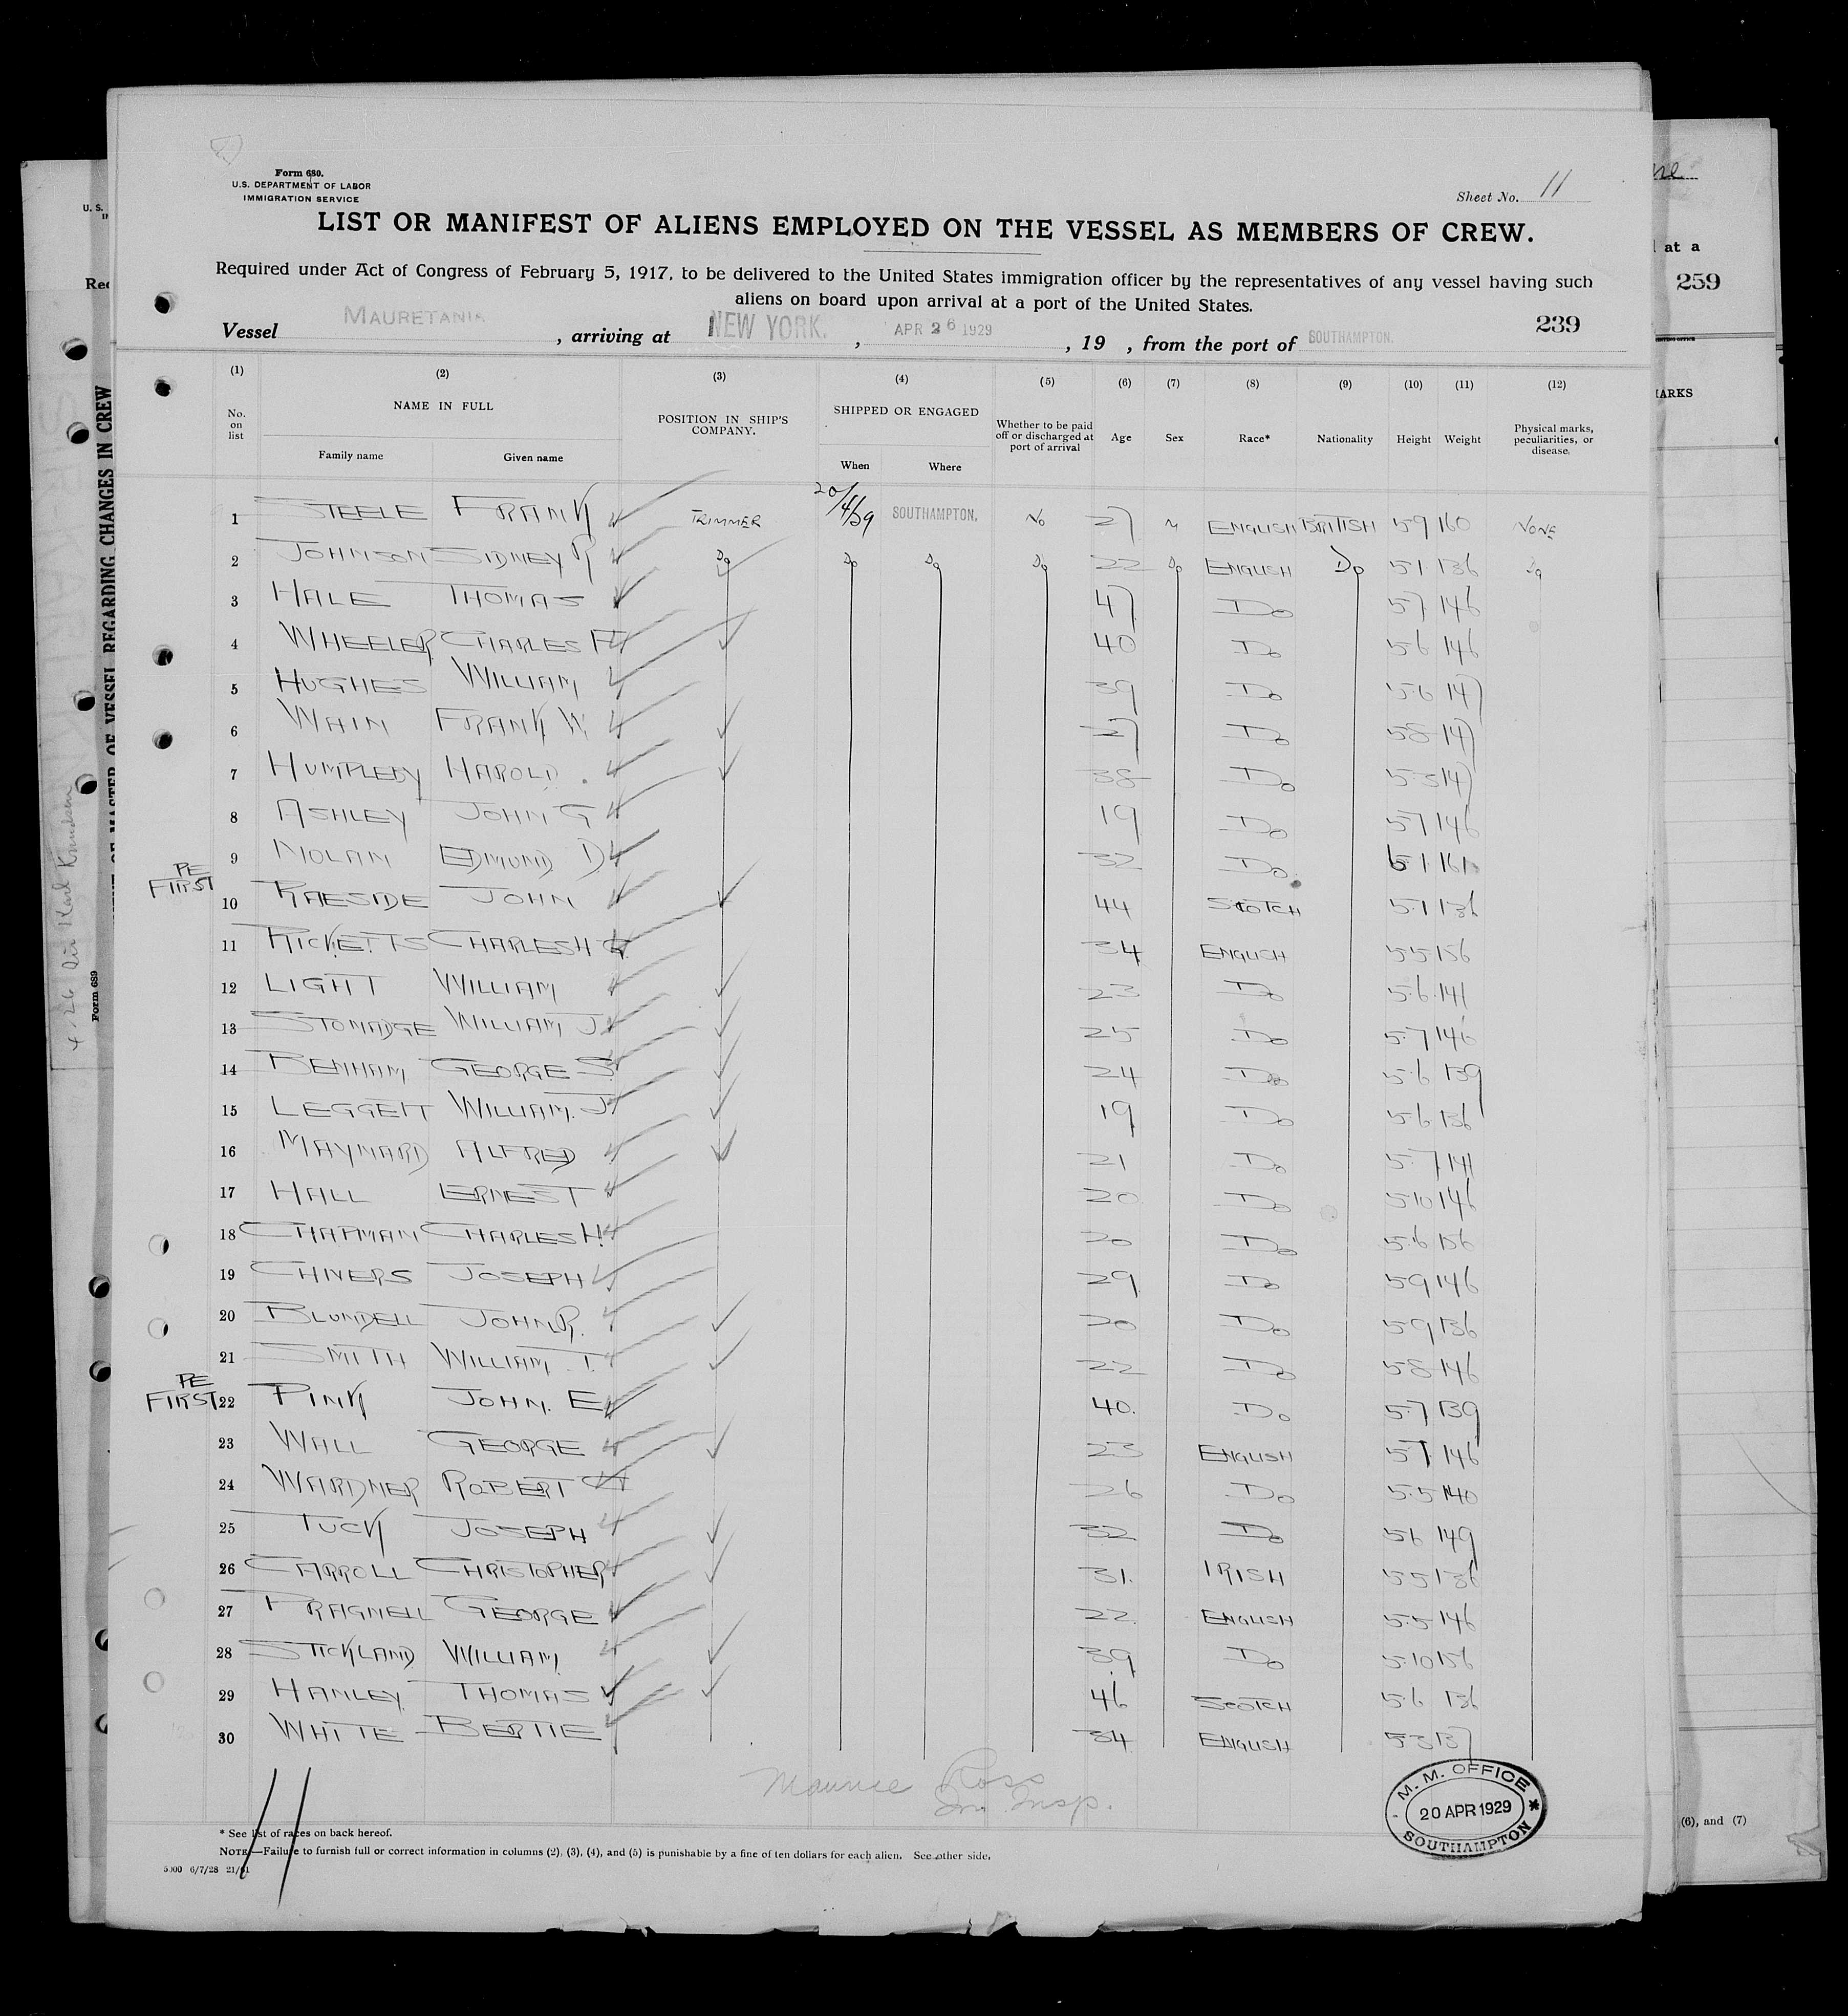 Form 680.
U.S. DEPARTMENT OF LABOR
IMMIGRATION SERVICE
Sheet No. 11
LIST OR MANIFEST OF ALIENS EMPLOYED ON THE VESSEL AS MEMBERS OF CREW.
Required under Act of Congress of February 5, 1917, to be delivered to the United States immigration officer by the representatives of any vessel having such
aliens on board upon arrival at a port of the United States.
239
Vessel MAURETANIA, arriving at NEW YORK., APR 26 1929, 19 , from the port of SOUTHAMPTON.
(1) (2) (3) (4) (5) (6) (7) (8) (9) (10) (11) (12)
No. on list NAME IN FULL Family name Given name POSITION IN SHIP'S COMPANY. SHIPPED OR ENGAGED When Where Whether to be paid off or discharged at port of arrival Age Sex Race* Nationality Height Weight Physical marks, peculiarities, or disease.
1 STEELE FRANK TRIMMER 20/4/29 SOUTHAMPTON. No 27 M ENGLISH BRITISH 59 160 NONE
2 JOHNSON SIDNEY R Do Do Do Do 22 Do ENGLISH Do 51 136 Do
3 HALE THOMAS 47 Do 57 146
4 WHEELER CHARLES F 40 Do 56 146
5 HUGHES WILLIAM 39 Do 56 147
6 WAIN FRANK W 27 Do 58 147
7 HUMPLEBY HAROLD. 38 Do 53 147
8 ASHLEY JOHN G 19 Do 57 146
9 NOLAN EDMUND D 32 Do 6 1 161
PE
FIRST
10 RAESIDE JOHN 44 SCOTCH 5.1 136
11 RICKETTS CHARLES H G 34 ENGLISH 55 156
12 LIGHT WILLIAM 23 Do 5.6 141
13 STOMADGE WILLIAM J. 25 Do 5.7 146
14 BENHAM GEORGE S. 24 Do 5.6 139
15 LEGGETT WILLIAM. J 19 Do 5.6 136
16 MAYNARD ALFRED 21 Do 5.7 141
17 HALL ERNEST 20 Do 5.10 146
18 CHAPMAN CHARLES H. 20 Do 5.6 156
19 CHIVERS JOSEPH 29 Do 59 146
20 BLUNDELL JOHN R. 20 Do 59 136
21 SMITH WILLIAM. T. 22 Do 58 146
PE
FIRST
22 PINK JOHN. E 40. Do 5.7 139
23 WALL GEORGE 23 ENGLISH 57 146
24 WARDNER ROBERT 26 Do 5.5 140
25 TUCK JOSEPH 32 Do 56 149
26 CARROLL CHRISTOPHER 31. IRISH 55 136
27 PRAGNELL GEORGE 22. ENGLISH 5.5 146
28 STICKLAND WILLIAM 39 Do 5.10 156
29 HANLEY THOMAS 46 SCOTCH 5.6 136
30 WHITE BERTIE 34 ENGLISH 53 137
Maurice Ross
Im. Insp.
M. M. OFFICE
20 APR 1929
SOUTHAMPTON
11
* See list of races on back hereof.
NOTE.—Failure to furnish full or correct information in columns (2), (3), (4), and (5) is punishable by a fine of ten dollars for each alien. See other side.
5000 6/7/28 21/81
OF MASTER OF VESSEL REGARDING CHANGES IN CREW
Form 689
U. S.
at a
259
(6), and (7)